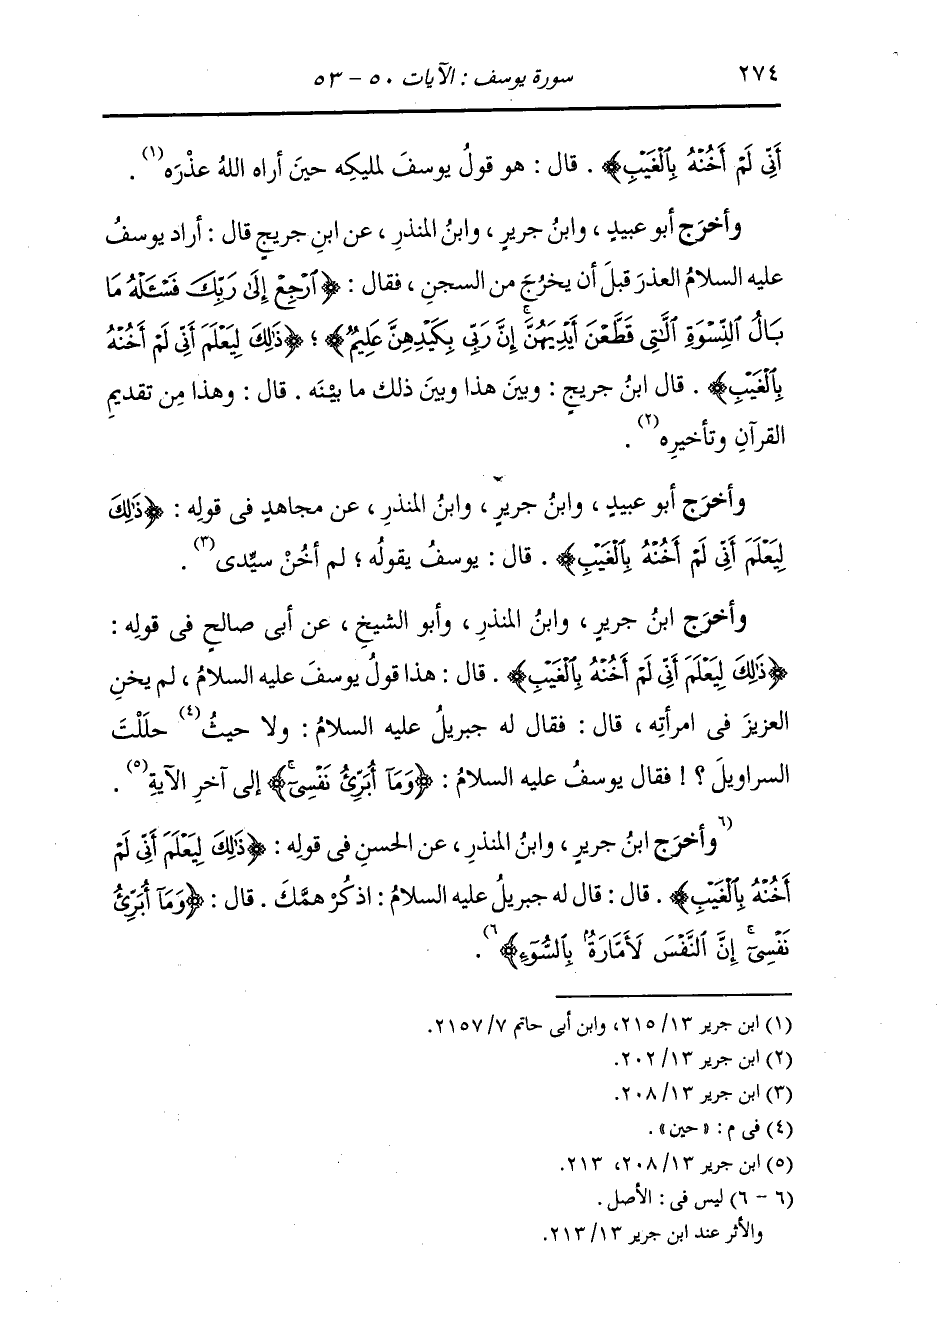 ٢٧٤ سورة يوسف : الآيات ٥٠ - ٥٣
أَنِّي لَمْ أَخُنْهُ بِالْغَيْبِ﴾ . قال : هو قولُ يوسفَ لمليكِه حينَ أراه اللهُ عذْرَه(١) .
وأخرَج أبو عبيدٍ ، وابنُ جريرٍ ، وابنُ المنذرِ ، عن ابنِ جريجٍ قال : أراد يوسفُ
عليه السلامُ العذرَ قبلَ أن يخرُجَ من السجنِ ، فقال : ﴿ٱرْجِعْ إِلَىٰ رَبِّكَ فَسْـَٔلْهُ مَا
بَالُ ٱلنِّسْوَةِ ٱلَّٰتِى قَطَّعْنَ أَيْدِيَهُنَّ ۚ إِنَّ رَبِّى بِكَيْدِهِنَّ عَلِيمٌ﴾ ؛ ﴿ذَٰلِكَ لِيَعْلَمَ أَنِّى لَمْ أَخُنْهُ
بِٱلْغَيْبِ﴾ . قال ابنُ جريجٍ : وبينَ هذا وبينَ ذلك ما بيْنَه . قال : وهذا مِن تقديمِ
القرآنِ وتأخيرِه(٢) .
وأخرَج أبو عبيدٍ ، وابنُ جريرٍ ، وابنُ المنذرِ ، عن مجاهدٍ فى قولِه : ﴿ذَٰلِكَ
لِيَعْلَمَ أَنِّى لَمْ أَخُنْهُ بِٱلْغَيْبِ﴾ . قال : يوسفُ يقولُه ؛ لم أخُنْ سيِّدى(٣) .
وأخرَج ابنُ جريرٍ ، وابنُ المنذرِ ، وأبو الشيخِ ، عن أبى صالحٍ فى قولِه :
﴿ذَٰلِكَ لِيَعْلَمَ أَنِّى لَمْ أَخُنْهُ بِٱلْغَيْبِ﴾ . قال : هذا قولُ يوسفَ عليه السلامُ ، لم يخنِ
العزيزَ فى امرأتِه ، قال : فقال له جبريلُ عليه السلامُ : ولا حيثُ(٤) حلَلْتَ
السراويلَ ؟ ! فقال يوسفُ عليه السلامُ : ﴿وَمَآ أُبَرِّئُ نَفْسِىٓ ۚ﴾ إلى آخرِ الآيةِ(٥) .
(٦)وأخرَج ابنُ جريرٍ ، وابنُ المنذرِ ، عن الحسنِ فى قولِه : ﴿ذَٰلِكَ لِيَعْلَمَ أَنِّى لَمْ
أَخُنْهُ بِٱلْغَيْبِ﴾ . قال : قال له جبريلُ عليه السلامُ : اذكُرْ همَّكَ . قال : ﴿وَمَآ أُبَرِّئُ
نَفْسِىٓ ۚ إِنَّ ٱلنَّفْسَ لَأَمَّارَةٌۢ بِٱلسُّوٓءِ﴾(٦) .
(١) ابن جرير ١٣/ ٢١٥، وابن أبى حاتم ٧/ ٢١٥٧.
(٢) ابن جرير ١٣/ ٢٠٢.
(٣) ابن جرير ١٣/ ٢٠٨.
(٤) فى م : « حين » .
(٥) ابن جرير ١٣/ ٢٠٨، ٢١٣.
(٦ - ٦) ليس فى : الأصل .
والأثر عند ابن جرير ١٣/ ٢١٣.